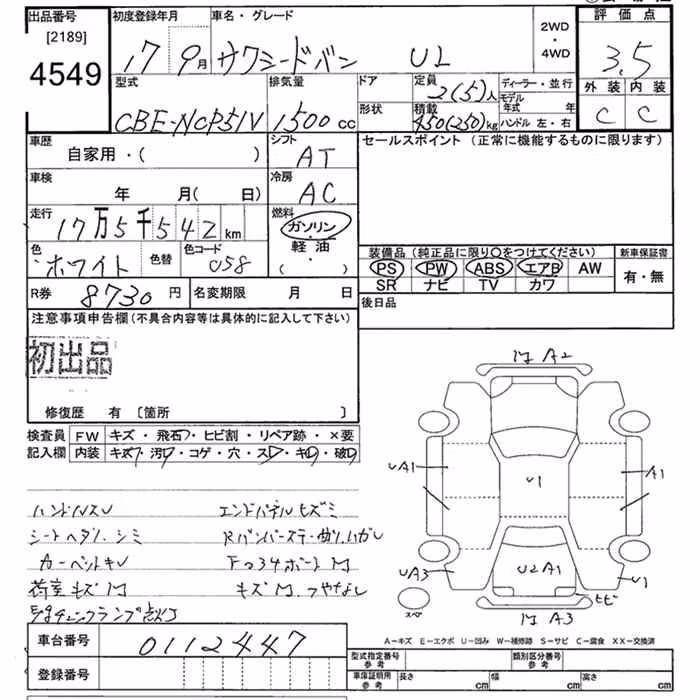 出品番号
[2189]
4549
初度登録年月
17 9月
車名・グレード
サクシードバン UL
2WD
・
4WD
評価点
3.5
外装 内装
C C
型式
CBE-NCP51V
排気量
1500 cc
ドア
形状
定員
2(5)人
積載
450(250)kg
ディーラー・並行
モデル年式 年
ハンドル 左・右
車歴
自家用・( )
シフト
AT
セールスポイント (正常に機能するものに限ります)
車検
年 月( 日)
冷房
AC
走行
17万5千542km
燃料
ガソリン
・
軽油
( ・ )
色
ホワイト
色替
色コード
058
装備品(純正品に限り○をつけてください)
PS PW ABS エアB AW
SR ナビ TV カワ
新車保証書
有・無
R券 8730円
名変期限 月 日
後日品
注意事項申告欄(不具合内容等は具体的に記入して下さい)
初出品
修復歴 有 [箇所 ]
検査員記入欄
FW キズ・飛石・ヒビ割・リペア跡・×要
内装 キズ・汚・コゲ・穴・スレ・キレ・破
ハンドルスレ
エンドパネルヒズミ
シートヘタリ、シミ
荷室キズ M
キズ M、つやなし
M A2
UA1
A1
U1
UA3
U2A1
U1
ヒビ
M A3
スペ
車台番号
0112447
登録番号
A-キズ E-エクボ U-凹み W-補修跡 S-サビ C-腐食 XX-交換済
型式指定番号
参考
類別区分番号
参考
車庫証明用
参考
長さ cm
幅 cm
高さ cm